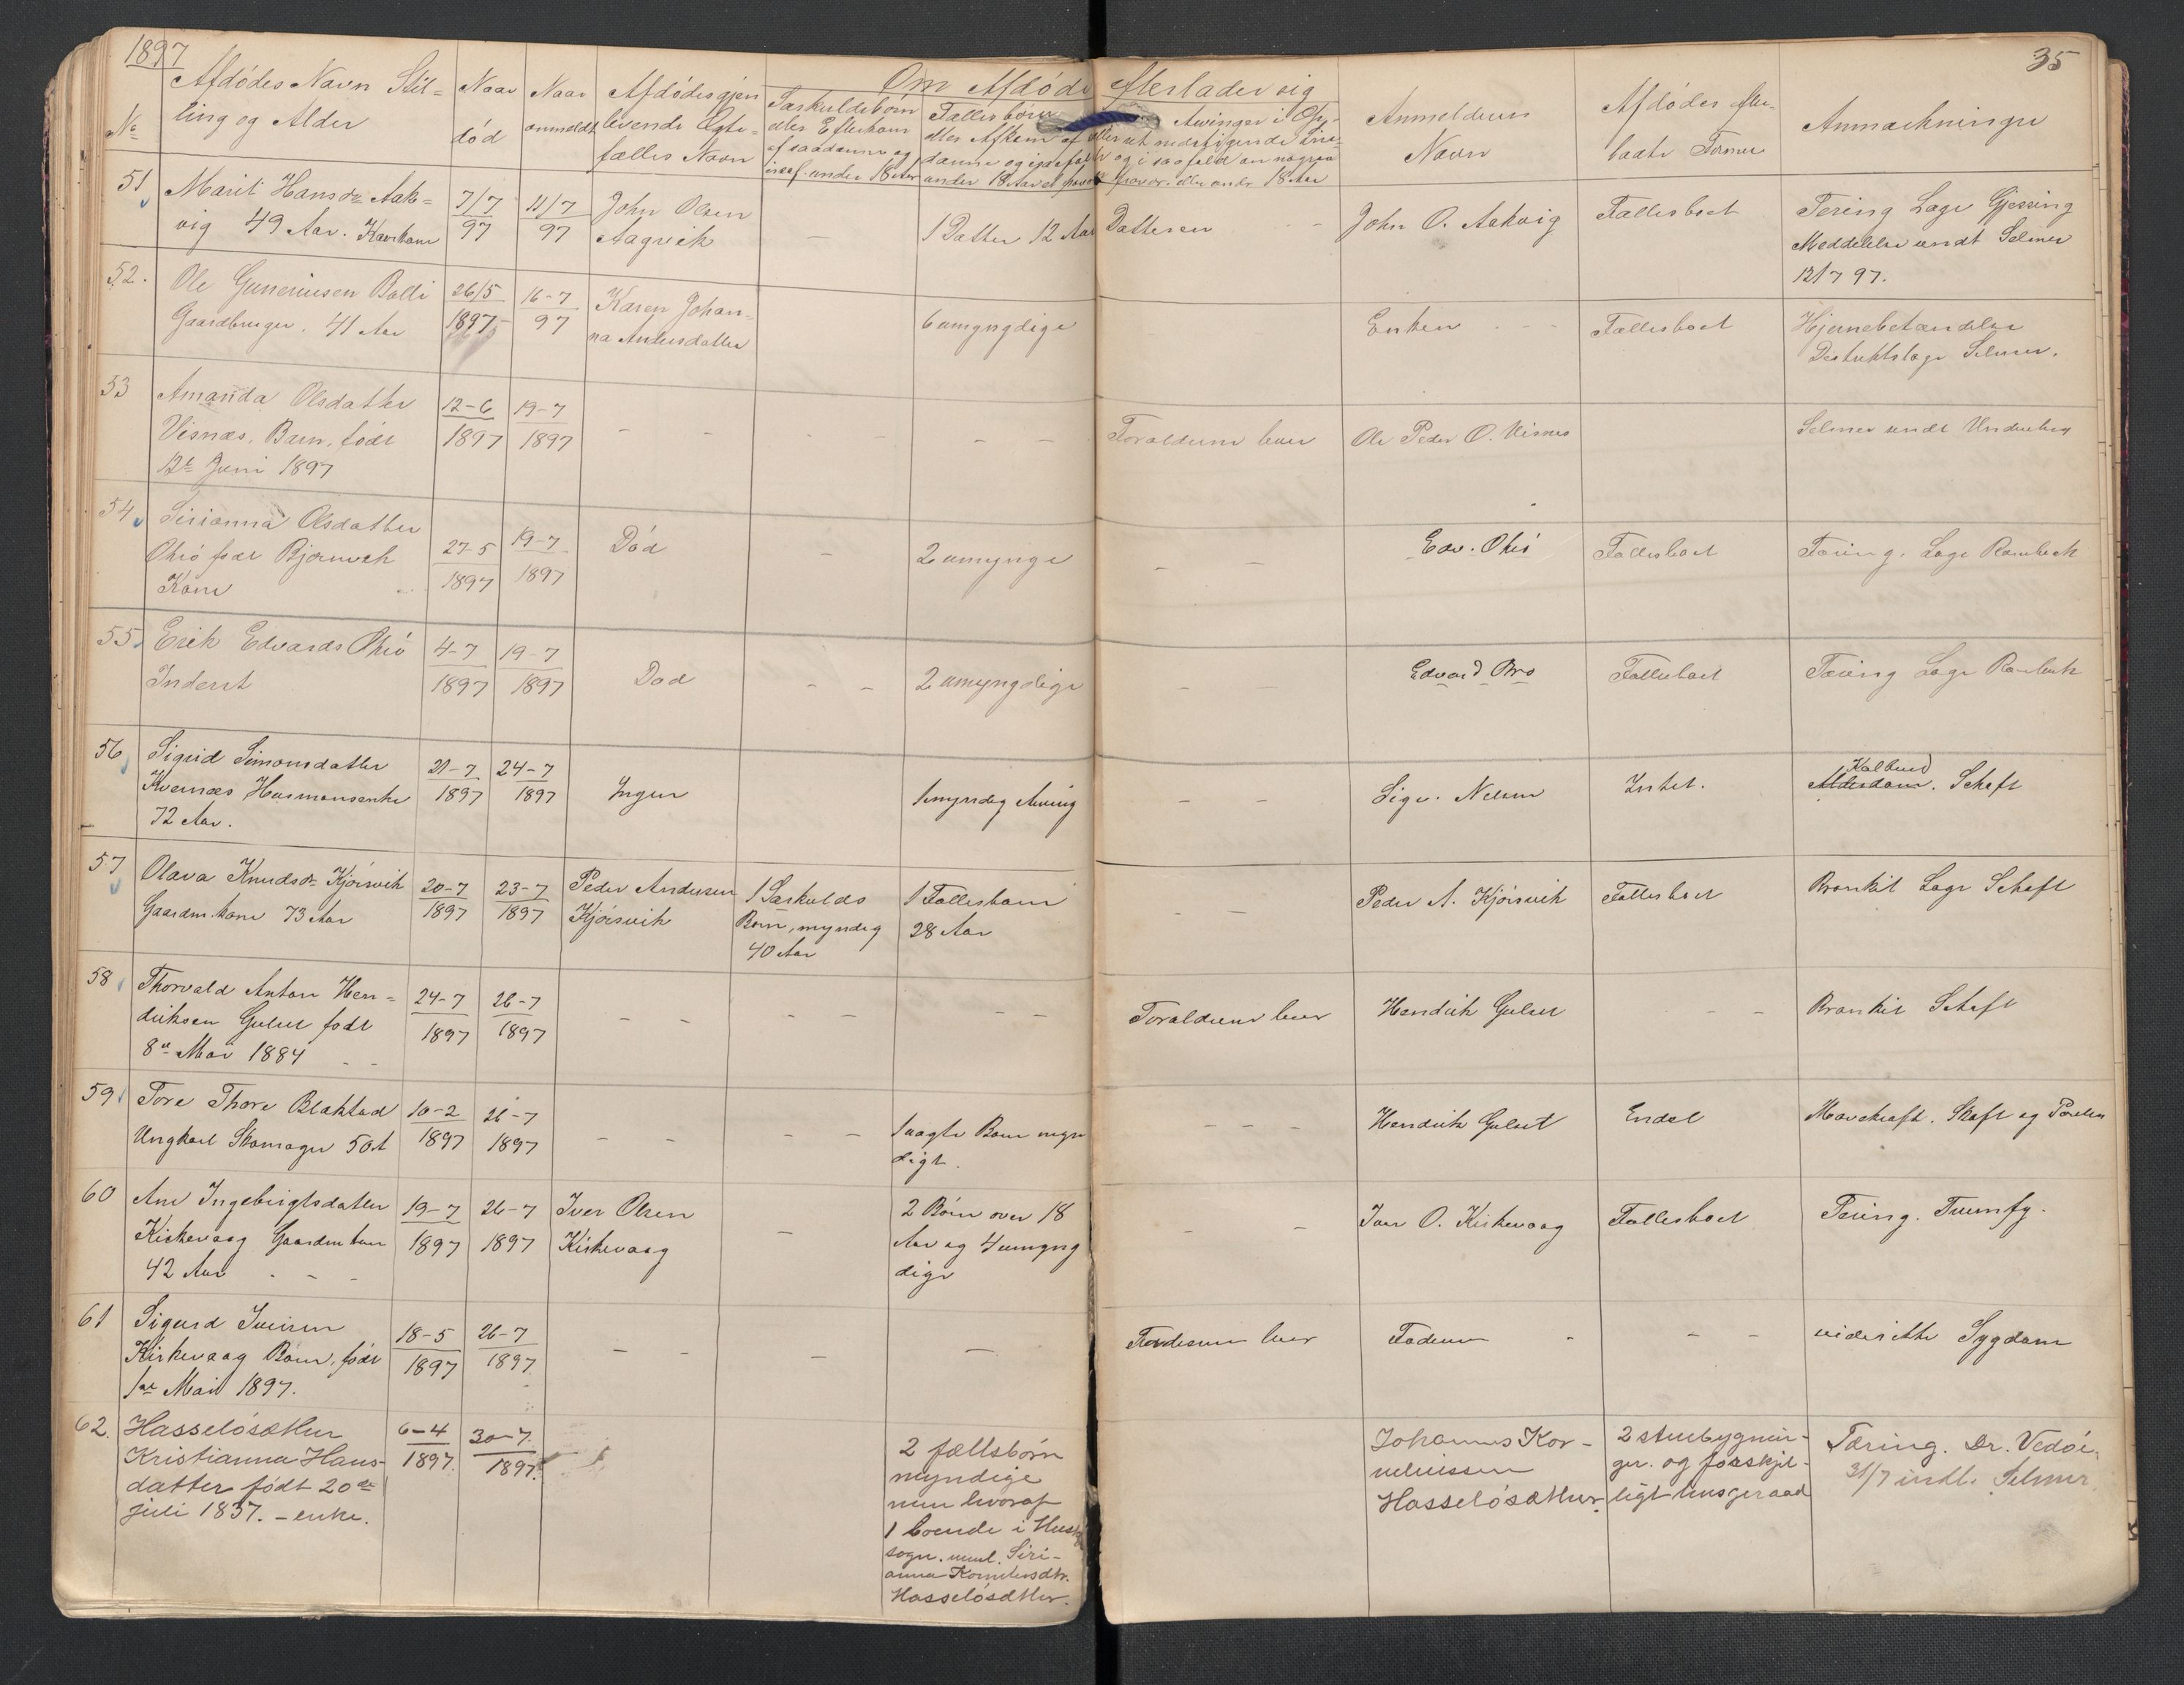 1897
35
Om Afdøde efterlader sig
No
Afdødes Navn Stil=
ling og Alder
Naar
død
Naar
anmeldt
Afdødes gjen
levende Ægte=
fælles Navn
Særkuldsbørn
eller Efterkom
af saadanne og
isaaf. under 18 Aar
Fællesbørn
eller Afkom af
danne og isaafald
under 18 Aar
Arvinger i Op-
eller ret nedstigende Linie
og i saafald om nogen
under 18 Aar
Anmelderens
Navn
Afdødes efter-
ladte Formue
Anmærkninger
51
Marit Hansdr Aak=
vig 49 Aar. Kaarkone
7/7
97
11/7
97
John Olsen
Aagvik
1 Datter 12 Aar
Datteren
John O. Aakvig
Fællesboet
Tæring Læge Gjessing
Meddelelse sendt Selmer
12/7 97.
52.
Ole Guneriusen Bolli
Gaardbruger. 41 Aar
26/5
1897
16-7
97
Karen Johan-
na Andersdatter
6 umyngdige
Enken
Fællesboet
Hjernebetændelse
Destriktslæge Selmer.
53
Amanda Olsdatter
Visnæs, Barn, født
12te Juni 1897
12-6
1897
19-7
1897
- - - - - -
Forældrene lever
Ole Peder O. Visnes
Selmer sendt Underretn
54
Sirianna Olsdatter
Ohsø født Bjørnvik
Kone
27-5
1897
19-7
1897
Død
-
2 umynge
- -
Edv. Ohsø
Fællesboet
Tæring. Læge Rombeck
55
Erik Edvards Ohsø
Inderst
4-7
1897
19-7
1897
Død
- -
2 umyngdige
- -
Edvard Ohsø
Fællesboet
Tæring Læge Rombeck
56
Sigrid Simonsdatter
Kvernæs Husmansenke
72 Aar.
21-7
1897
24-7
1897
Ingen
1 myndig Arving
- -
Sigv. Nelsen
Intet.
Kolbrand
Alderdom. Schaft
57
Olava Knudsdr Kjørsvik
Gaardm.kone 73 Aar
20-7
1897
23-7
1897
Peder Andersen
Kjørsvik
1 Særkulds
Barn, myndig
40 Aar
1 Fællesbarn
28 Aar
- -
Peder A. Kjørsvik
Fællesboet
Bronkit Læge Schaft
58
Thorvald Anton Hen=
driksen Gulset født
8de Mai 1884
24-7
1897
26-7
1897
- - - - - -
Forældrene lever
Hendrik Gulset
- -
Bronkit Schaft
59
Tore Thore Blakstad
Ungkarl Skomager 50 A
10-2
1897
26-7
1897
- - - -
1 uægte Barn myn
digt.
- - -
Hendrik Gulset
Endel
Mavekræft. Skaft og Povelsen
60
Ane Ingebrigtsdatter
Kirkevaag Gaardm.kone
42 Aar
19-7
1897
26-7
1897
Iver Olsen
Kirkevaag
-
2 Børn over 18
Aar og 4 umyng
dige
- -
Iver O. Kirkevaag
Fællesboet
Tæring. Tuemfg.
61
Sigurd Iversen
Kirkevaag Barn, født
1ste Mai 1897.
18-5
1897
26-7
1897
- - - -
Forældrene lever
Faderen
- - -
uidentte Sygdom
62.
Hasseløsætter
Kristianna Hans-
datter født 20de
juli 1837. - enke.
6-4
1897.
30-7.
1897.
2 fællsbørn
myndige
men hvoraf
1 boende i Hus
sogn. neml. Siri-
anna Korneliusdtr.
Hasseløsætter.
Johannes Kor-
neliussen
Hasseløsætter.
2 stuebygnin-
ger. og forskjel-
ligt huusgeraad
Tæring. Dr. Vedøe.
31/7 indb. Selmer